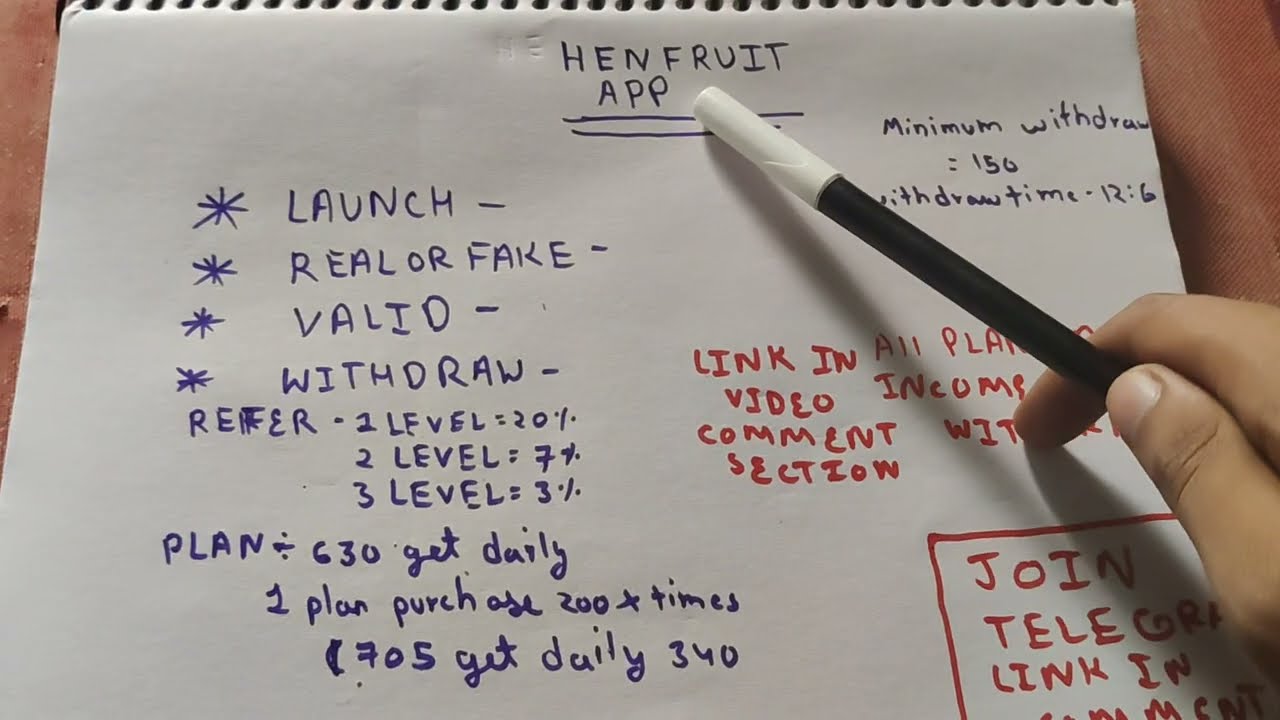 HENFRUIT
APP
Minimum withdraw
= 150
withdraw time - 12:6
* LAUNCH -
* REAL OR FAKE -
* VALID -
* WITHDRAW -
REFER - 1 LEVEL = 20%
2 LEVEL = 7%
3 LEVEL = 3%
PLAN ÷ 630 get daily
1 plan purchase 200 * times
705 get daily 340
LINK IN
VIDEO
COMMENT
SECTION
All PLAN
INCOME
JOIN
TELEGRA
LINK IN
COMMENT